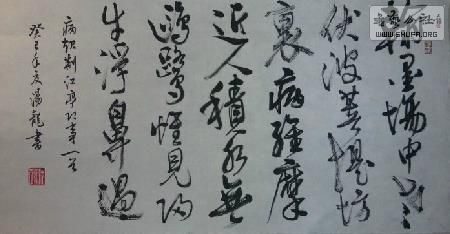 翰墨場中老
伏波菩提坊
裏病維摩
近人積水無
鷗鷺惟見歸
牛浮鼻過
病起荆江亭即事一首
癸巳年湯龍書
公社
WWW.SHUFA.ORG